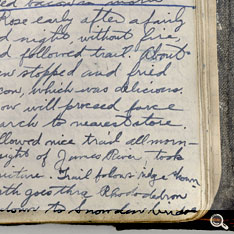 Rose early after a fairly
d night without fire
d followed trail. About
en stopped and fried
con, which was delicious.
ow will proceed force
arch to nearest store.
llowed nice trail all morn-
ight of James River took
icture. Trail folows ridge
ath goes thru Rhododedron
down to Snowden